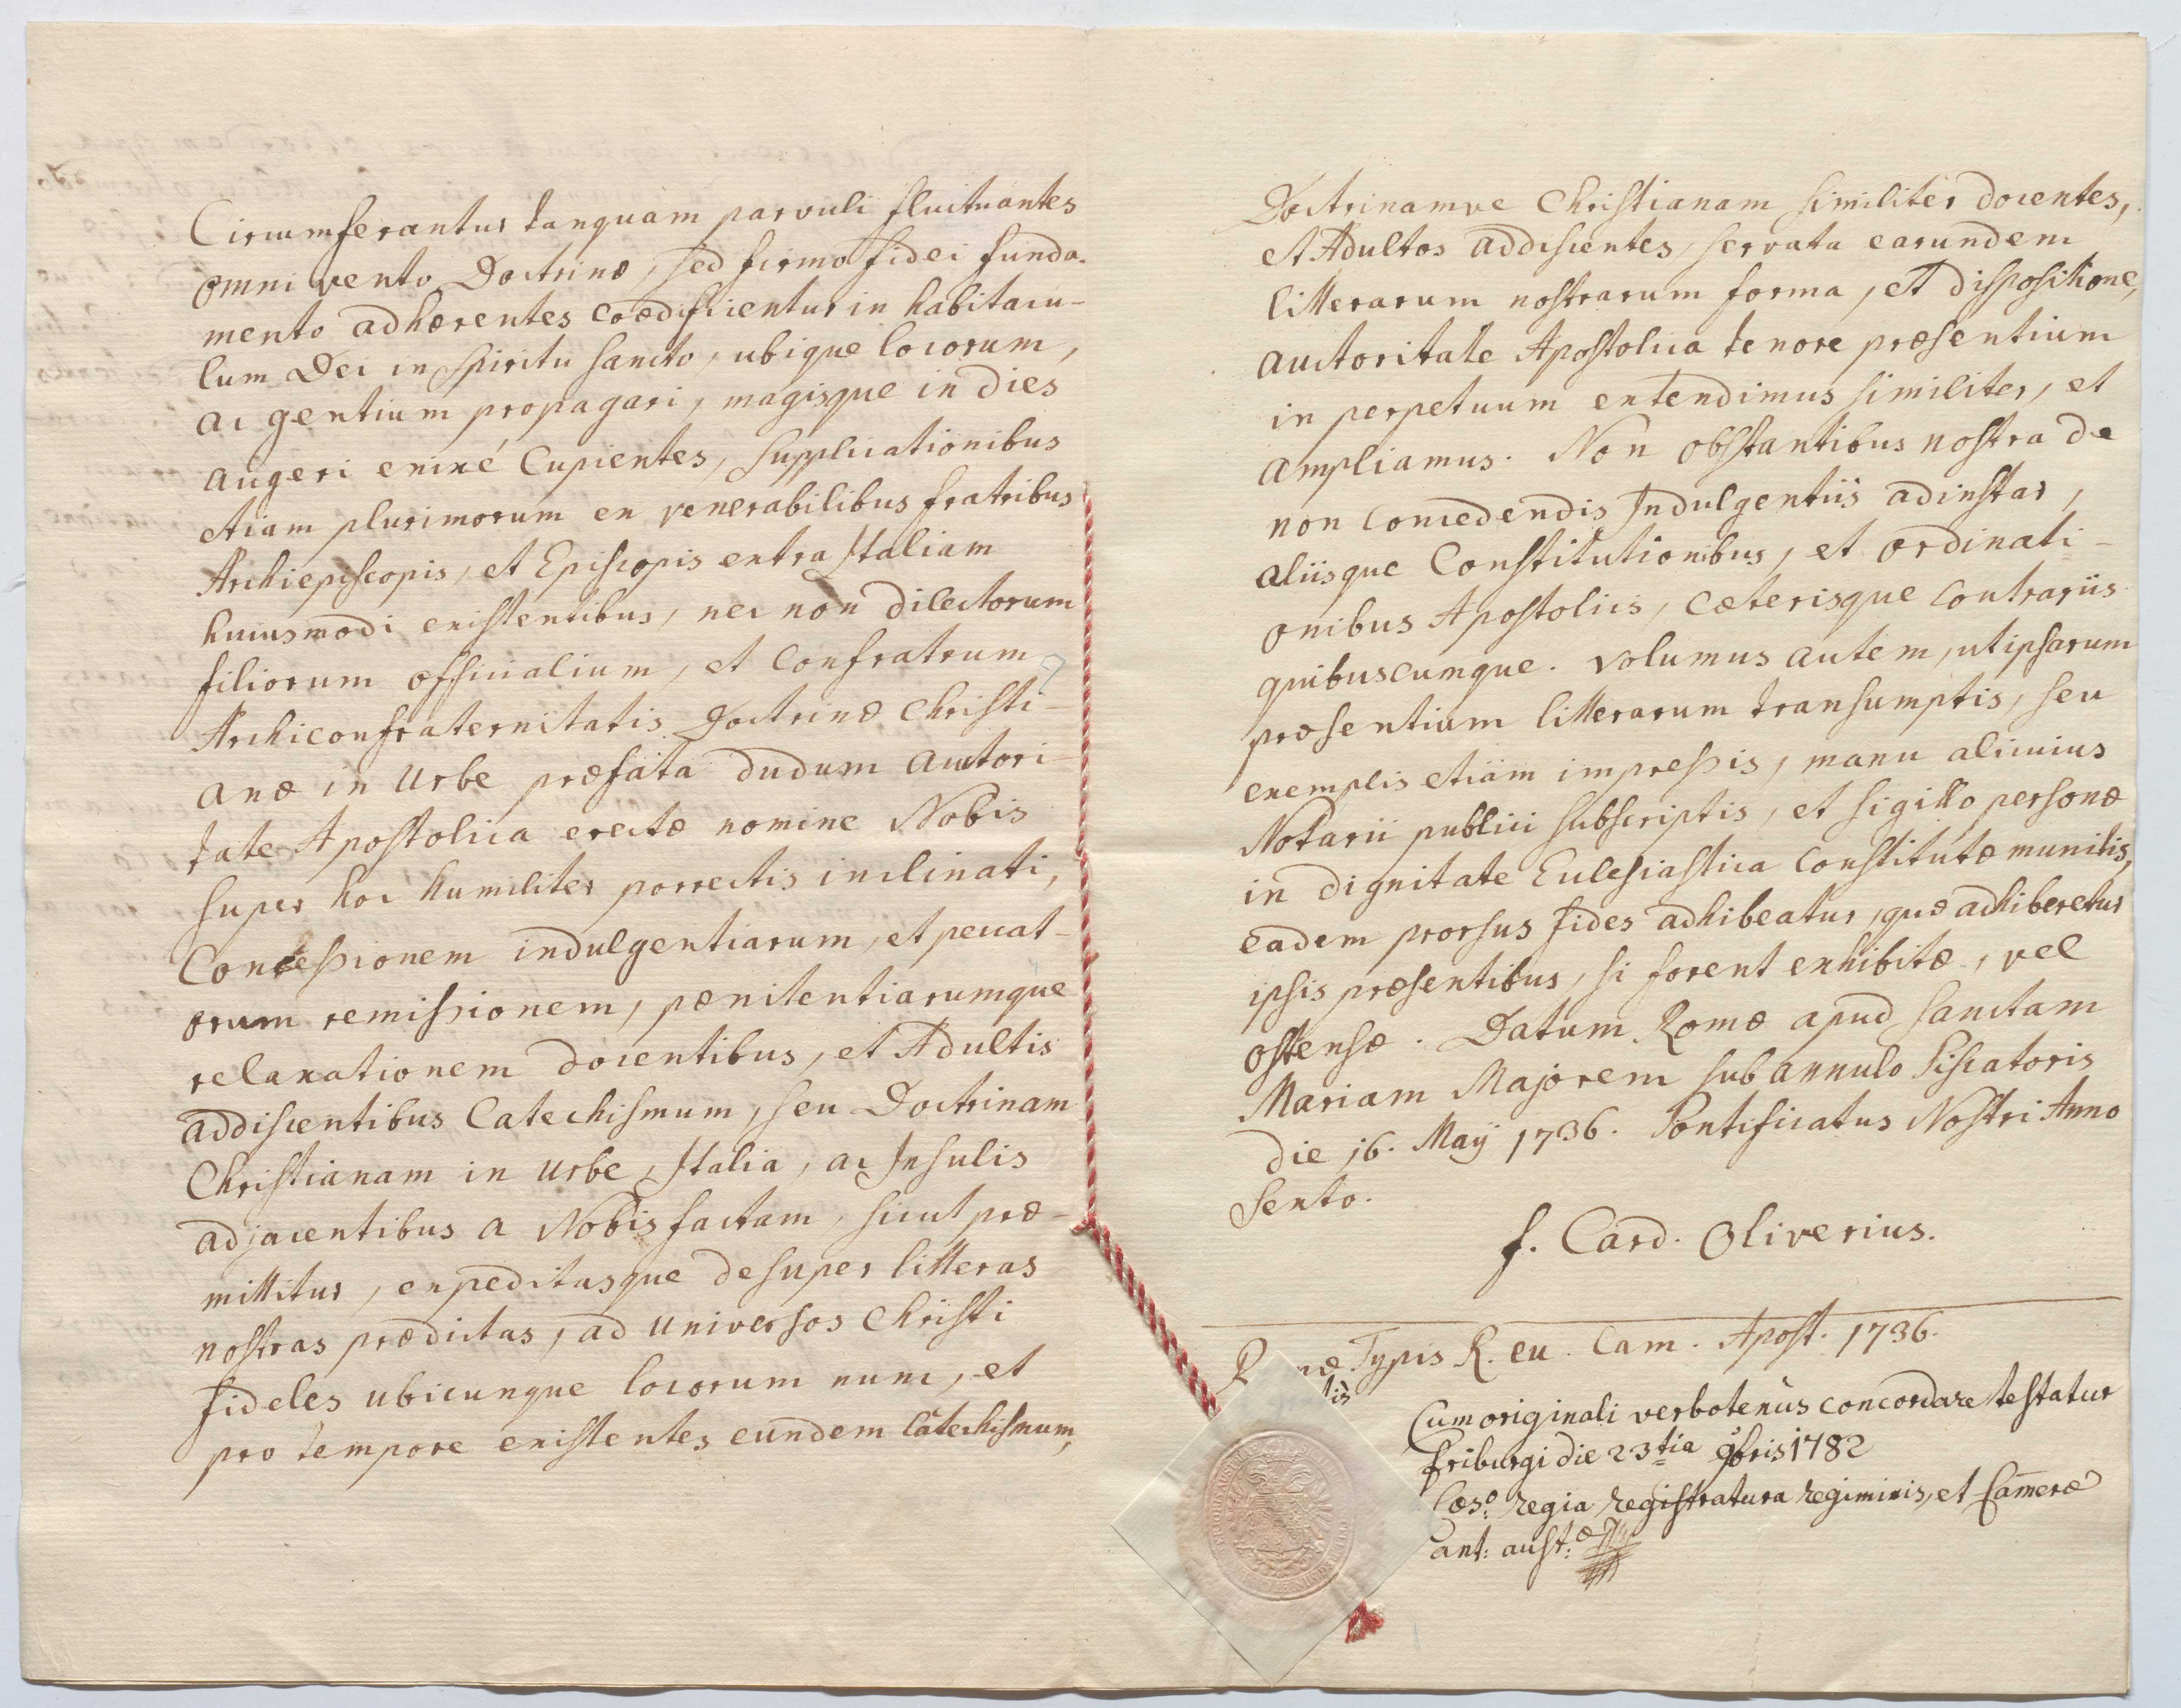 Circumferantur tanquam parvuli fluctuantes
omni vento Doctrinæ, sed firmo fidei funda-
mento adhærentes coædificientur in habitacu-
lum Dei in Spiritu Sancto, ubique locorum,
ac gentium propagari, magisque in dies
augeri enixé Cupientes, Supplicationibus
etiam plurimorum ex venerabilibus fratribus
Archiepiscopis, et Episcopis extra Italiam
huiusmodi existentibus, nec non dilectorum
filiorum officialium, et Confratrum
Archiconfraternitatis Doctrinæ Christi-
anæ in Urbe præfata dudum auctori-
tate Apostolica erectæ nomine Nobis
super hoc humiliter porrectis inclinati,
Concessionem indulgentiarum, et peccat-
orum remissionem, pænitentiarumque
relaxationem docentibus, et Adultis
addiscentibus Catechismum, seu Doctrinam
Christianam in Urbe, Italia, ac Insulis
adjacentibus a Nobis factam, sicut præ-
mittitur, expeditasque desuper litteras
nostras prædictas, ad universos Christi
fideles ubicunque locorum nunc, et
pro tempore existentes eundem Catechismum,
Doctrinamve Christianam similiter docentes,
et Adultos addiscentes, servata earundem
litterarum nostrarum forma, et dispositione,
auctoritate Apostolica tenore præsentium
in perpetuum extendimus similiter, et
ampliamus. Non obstantibus nostra de
non Concedendis Indulgentiis ad instar,
aliisque Constitutionibus, et ordinati-
onibus Apostolicis, Cæterisque Contrariis
quibuscumque. volumus autem, ut ipsarum
præsentium litterarum transumptis, seu
exemplis etiam impressis, manu alicuius
Notarii publici subscriptis, et sigillo personæ
in dignitate Ecclesiastica Constitutæ munitis,
eadem prorsus fides adhibeatur, quæ adhiberetur
ipsis præsentibus, si forent exhibitæ, vel
ostensæ. Datum Romæ apud Sanctam
Mariam Majorem sub annulo Piscatoris
die 16. Maÿ 1736. Pontificatus Nostri Anno
Sexto.
f. Card. Oliverius.
Typis R. eu. Cam. Apost. 1736.
Cum originali verbotenùs concordare testatur
friburgi die 23tia 9bris 1782
Cæso: regia registratura regiminis, et Cameræ
ant: aust:æ